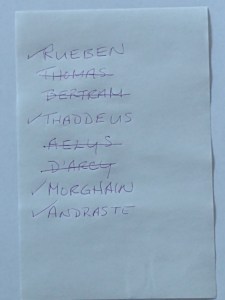 ✓ RUEBEN
THOMAS
BERTRAM
✓ THADDEUS
AELYS
D'ARCY
✓ MORGHAIN
✓ ANDRASTE